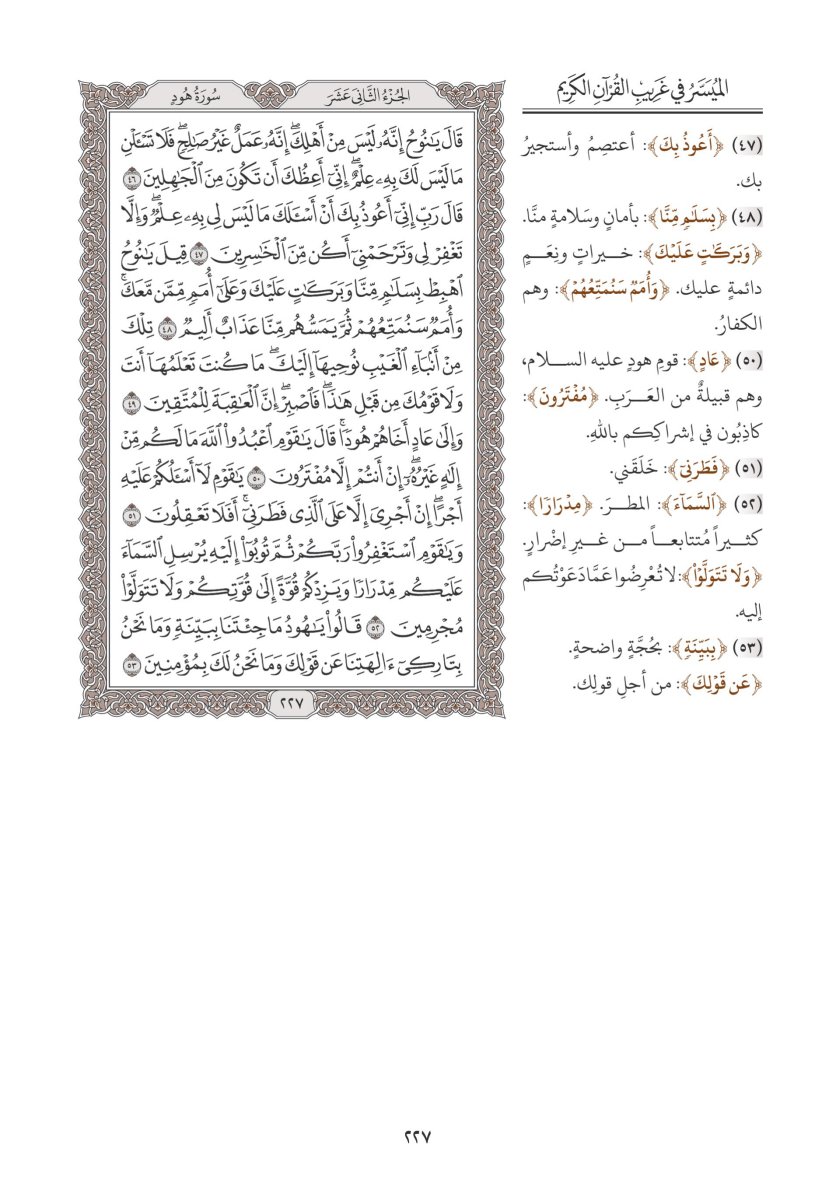 الميَسَّرُ في غَرِيبِ القُرْآنِ الكَرِيم
(٤٧) ﴿أَعُوذُ بِكَ﴾: أعتصِمُ وأستجيرُ
بك.
(٤٨) ﴿بِسَلَٰمٖ مِّنَّا﴾: بأمانٍ وسَلامةٍ منَّا.
﴿وَبَرَكَٰتٍ عَلَيْكَ﴾: خيراتٍ ونِعَمٍ
دائمةٍ عليك. ﴿وَأُمَمٞ سَنُمَتِّعُهُمْ﴾: وهم
الكفارُ.
(٥٠) ﴿عَادٍ﴾: قومِ هودٍ عليه السلام،
وهم قبيلةٌ من العَرَبِ. ﴿مُفْتَرُونَ﴾:
كاذِبُون في إشراكِكم باللهِ.
(٥١) ﴿فَطَرَنِيٓ﴾: خلَقَني.
(٥٢) ﴿ٱلسَّمَآءَ﴾: المطرَ. ﴿مِدْرَارٗا﴾:
كثيراً مُتتابعاً من غيرِ إضْرارٍ.
﴿وَلَا تَتَوَلَّوْاْ﴾: لا تُعْرِضُوا عَمَّا دَعَوْتُكم
إليه.
(٥٣) ﴿بِبَيِّنَةٖ﴾: بحُجَّةٍ واضحةٍ.
﴿عَن قَوْلِكَ﴾: من أجلِ قولِك.
الجُزْءُ الثَّانِي عَشَرَ
سُورَةُ هُودٍ
قَالَ يَٰنُوحُ إِنَّهُۥ لَيْسَ مِنْ أَهْلِكَۖ إِنَّهُۥ عَمَلٌ غَيْرُ صَٰلِحٖۖ فَلَا تَسْـَٔلْنِ
مَا لَيْسَ لَكَ بِهِۦ عِلْمٌۖ إِنِّيٓ أَعِظُكَ أَن تَكُونَ مِنَ ٱلْجَٰهِلِينَ ٤٦
قَالَ رَبِّ إِنِّيٓ أَعُوذُ بِكَ أَنْ أَسْـَٔلَكَ مَا لَيْسَ لِي بِهِۦ عِلْمٞۖ وَإِلَّا
تَغْفِرْ لِي وَتَرْحَمْنِيٓ أَكُن مِّنَ ٱلْخَٰسِرِينَ ٤٧ قِيلَ يَٰنُوحُ
ٱهْبِطْ بِسَلَٰمٖ مِّنَّا وَبَرَكَٰتٍ عَلَيْكَ وَعَلَىٰٓ أُمَمٖ مِّمَّن مَّعَكَۚ
وَأُمَمٞ سَنُمَتِّعُهُمْ ثُمَّ يَمَسُّهُم مِّنَّا عَذَابٌ أَلِيمٞ ٤٨ تِلْكَ
مِنْ أَنۢبَآءِ ٱلْغَيْبِ نُوحِيهَآ إِلَيْكَۖ مَا كُنتَ تَعْلَمُهَآ أَنتَ
وَلَا قَوْمُكَ مِن قَبْلِ هَٰذَاۖ فَٱصْبِرْۖ إِنَّ ٱلْعَٰقِبَةَ لِلْمُتَّقِينَ ٤٩
وَإِلَىٰ عَادٍ أَخَاهُمْ هُودٗاۚ قَالَ يَٰقَوْمِ ٱعْبُدُواْ ٱللَّهَ مَا لَكُم مِّنْ
إِلَٰهٍ غَيْرُهُۥٓۖ إِنْ أَنتُمْ إِلَّا مُفْتَرُونَ ٥٠ يَٰقَوْمِ لَآ أَسْـَٔلُكُمْ عَلَيْهِ
أَجْرًاۖ إِنْ أَجْرِيَ إِلَّا عَلَى ٱلَّذِي فَطَرَنِيٓۚ أَفَلَا تَعْقِلُونَ ٥١
وَيَٰقَوْمِ ٱسْتَغْفِرُواْ رَبَّكُمْ ثُمَّ تُوبُوٓاْ إِلَيْهِ يُرْسِلِ ٱلسَّمَآءَ
عَلَيْكُم مِّدْرَارٗا وَيَزِدْكُمْ قُوَّةً إِلَىٰ قُوَّتِكُمْ وَلَا تَتَوَلَّوْاْ
مُجْرِمِينَ ٥٢ قَالُواْ يَٰهُودُ مَا جِئْتَنَا بِبَيِّنَةٖ وَمَا نَحْنُ
بِتَارِكِيٓ ءَالِهَتِنَا عَن قَوْلِكَ وَمَا نَحْنُ لَكَ بِمُؤْمِنِينَ ٥٣
٢٢٧
٢٢٧